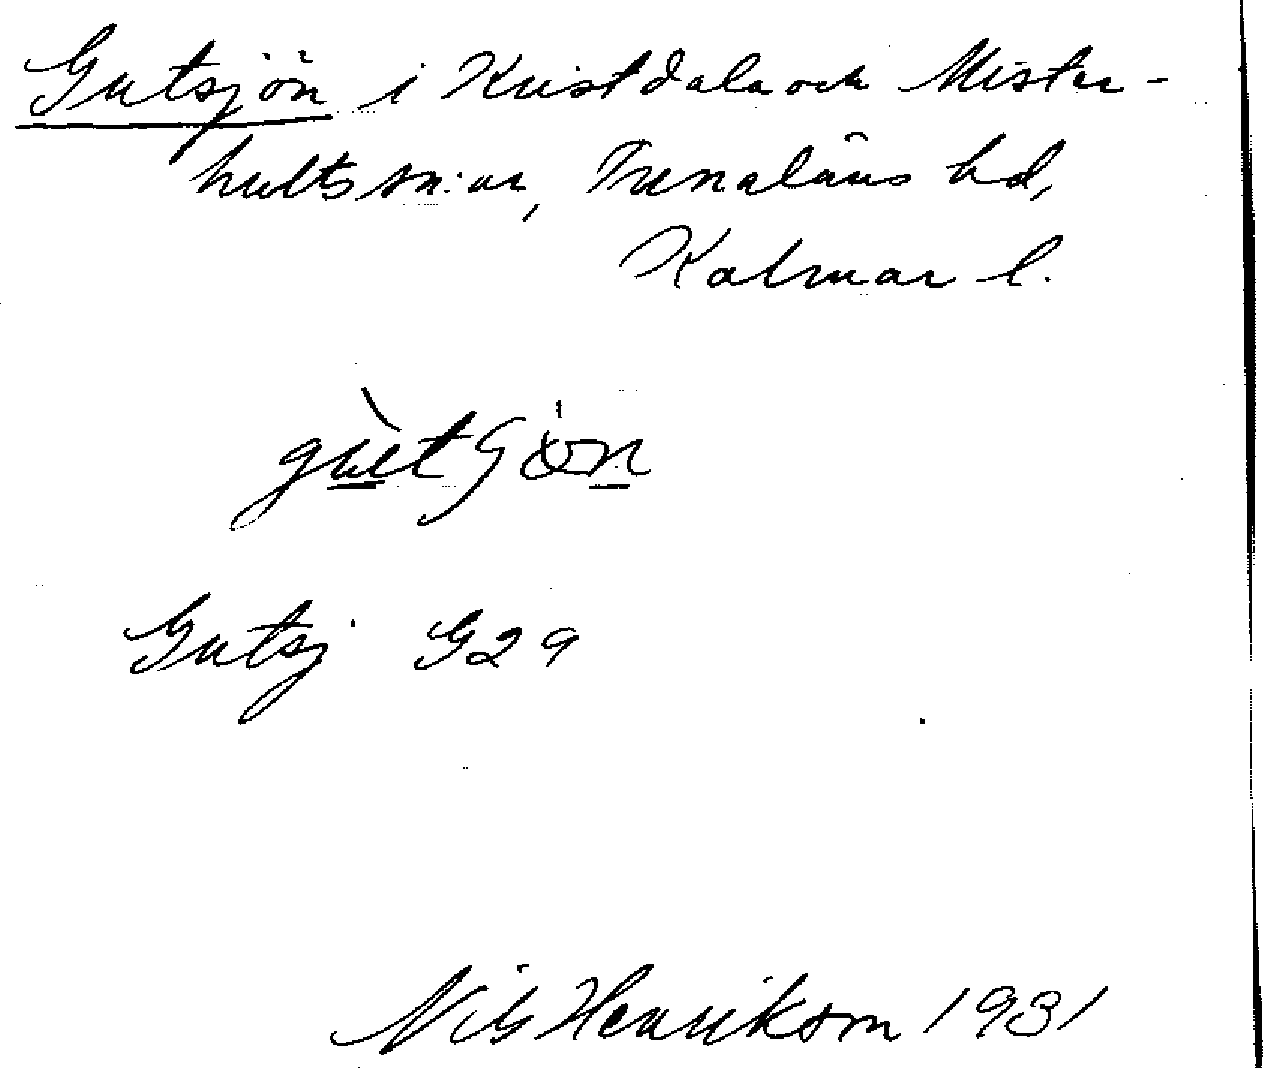 Gutsjön i Kristdala och Mister-
hults sn:ar, Tunaläns hd,
Kalmar l.
Gutsj G29
Nils Henrikson 1931